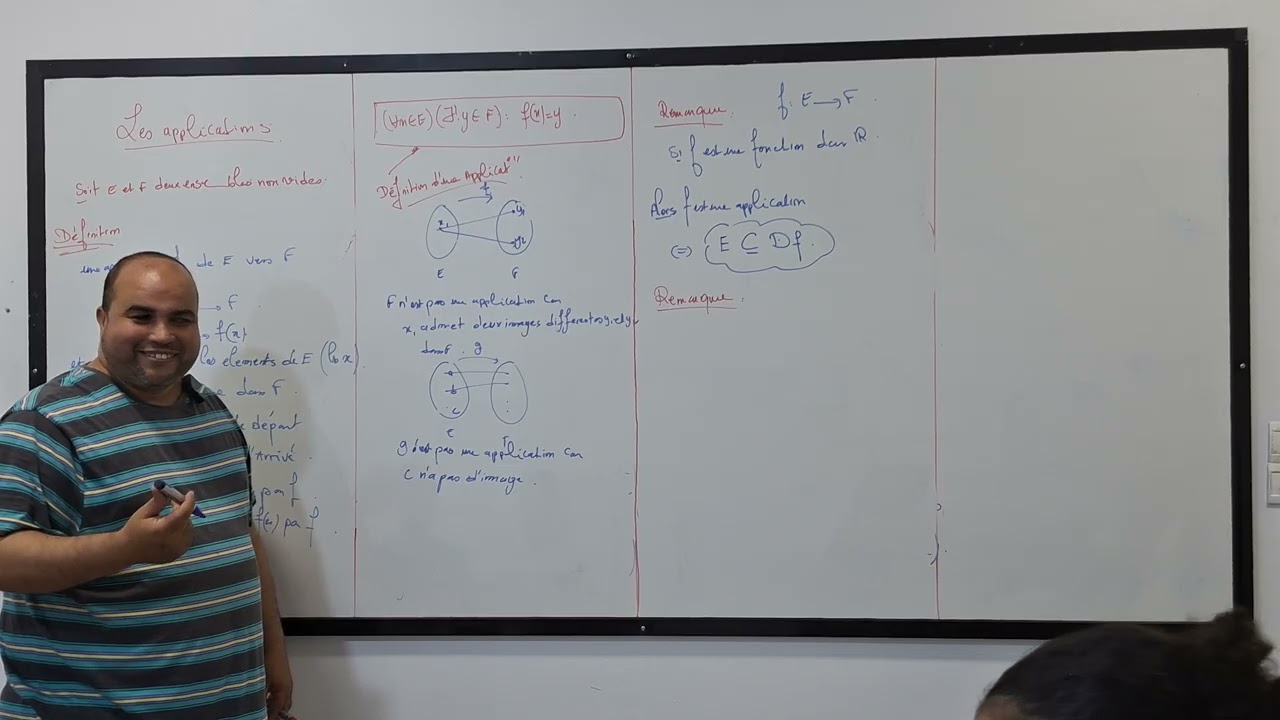 Les applications
Soit E et F deux ensembles non vides.
Définition
une de E vers F
→ F
f(x)
les elements de E (les x)
dans F.
départ
d'Arrivé.
par f.
f(x) par f.
(∀x∈E)(∃!y∈F): f(x)=y.
Définition d'une Applicat°"
f
x₁ y₁
y₂
E F
F n'est pas une application car
x₁ admet deux images differentes y₁ et y₂
dans F. g
a
b
c
E F
g n'est pas une application car
C n'a pas d'image.
Remarque. f: E → F.
Si f est une fonction dans ℝ.
Alors f est une application
⇔ E ⊆ Df.
Remarque: